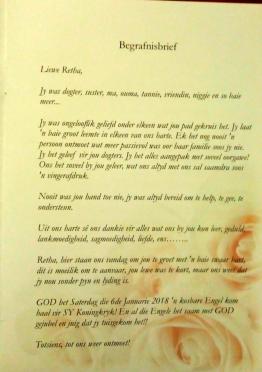 Begrafnisbrief
Liewe Retha,
Jy was dogter, suster, ma, ouma, tannie, vriendin, niggie en so baie
meer...
Jy was ongelooflik geliefd onder elkeen wat jou pad gekruis het. Jy laat
'n baie groot leemte in elkeen van ons harte. Ek het nog nooit 'n
persoon ontmoet wat meer passievol was oor haar familie soos jy nie.
Jy het geleef vir jou dogters. Jy het alles aangepak met soveel oorgawe!
Ons het soveel by jou geleer, wat ons altyd met ons sal saamdra soos
'n vingerafdruk.
Nooit was jou hand toe nie, jy was altyd bereid om te help, te gee, te
ondersteun.
Uit ons harte sê ons dankie vir alles wat ons by jou kon leer, geduld,
lankmoedigheid, sagmoedigheid, liefde, ens........
Retha, hier staan ons vandag om jou te groet met 'n baie swaar hart,
dit is moeilik om te aanvaar, jou lewe was te kort, maar ons weet dat
jy nou sonder pyn en lyding is.
GOD het Saterdag die 6de Januarie 2018 'n kosbare Engel kom
haal vir SY Koningkryk! En al die Engele het saam met GOD
gejubel en juig dat jy tuisgekom het!!
Totsiens, tot ons weer ontmoet!